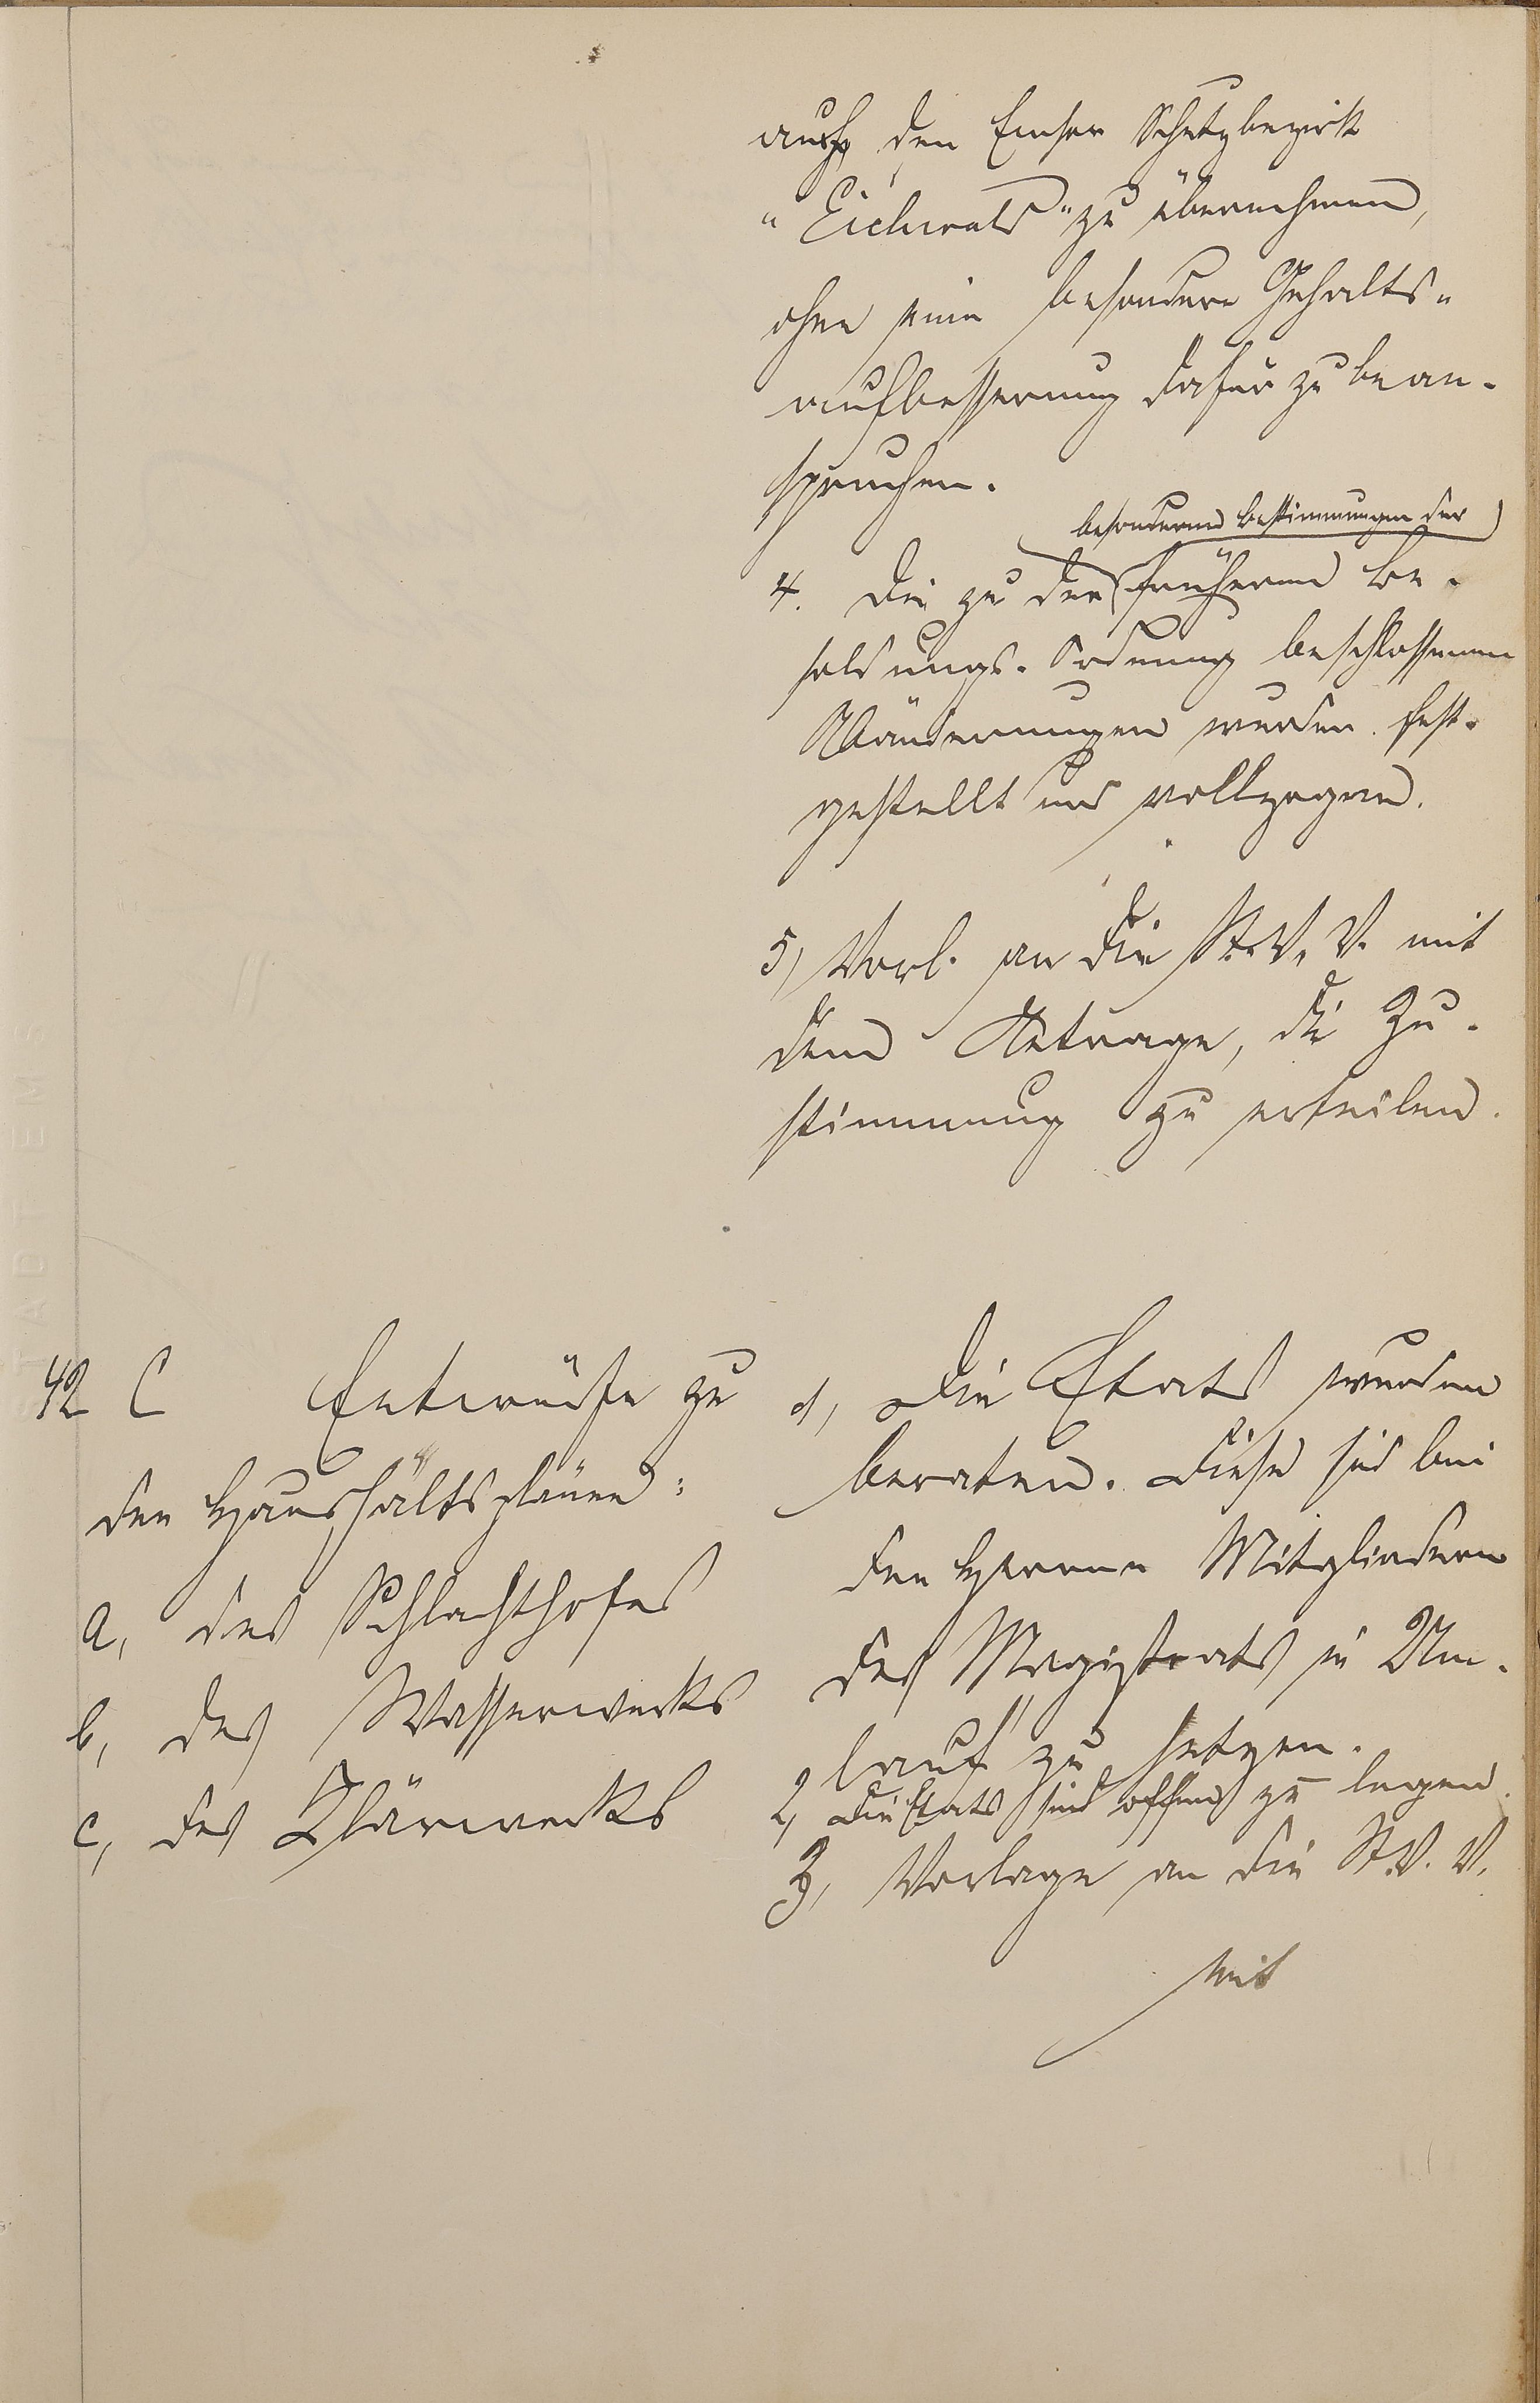 auch den Emser Schutzbezirk
"Eichwald" zu übernehmen,
ohne eine besondere Gehalts-
aufbesserung dafür zu bean-
spruchen.
besonderen Bestimmungen der
4. Die zu den früheren Be-
soldungs-Ordnung beschlossenen
Abänderungen wurden fest-
gestellt und vollzogen.
5) Vorl. an die St. V. V. mit
dem Antrage, die Zu-
stimmung zu erteilen.
42 C Entwürfe zu
den Haushaltsplänen:
a, des Schlachthofes
b, des Wasserwerks
c, des Klärwerks
1, Die Etats wurden
beraten. Diese sind bei
den Herren Mitgliedern
des Magistrats in Um-
lauf zu setzen.
2, Die Etats sind offen zu legen.
3, Vorlage an die St. V. V.
mit